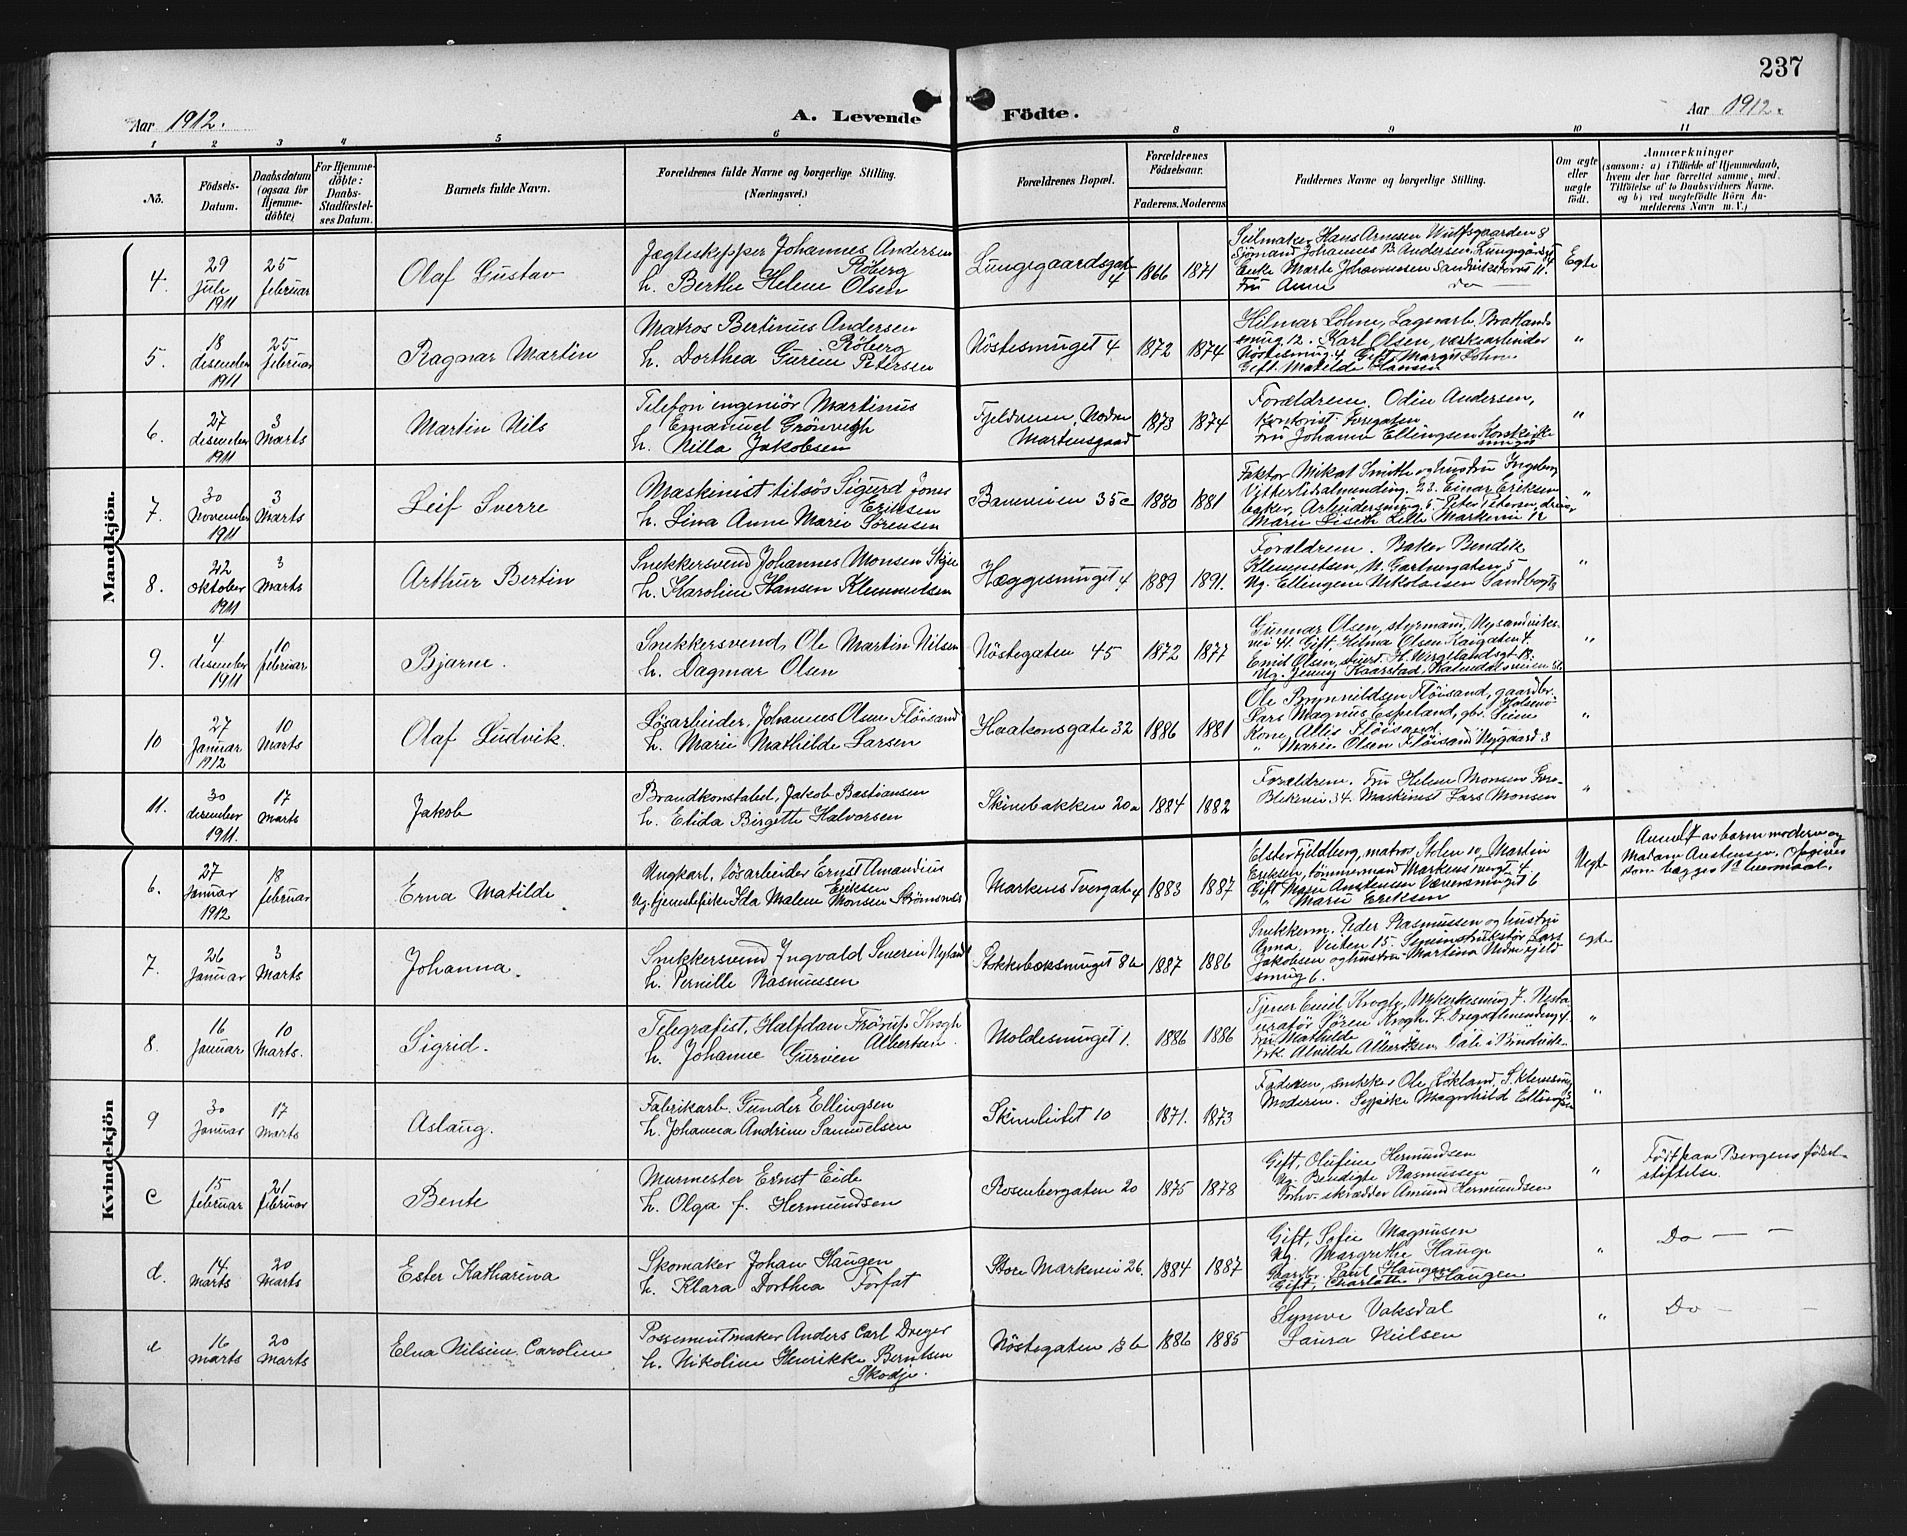 237
Aar 1912.
A. Levende Födte.
Aar 1912.
1 2 3 4 5 6 8 9 10 11
No.
Födsels-Datum.
Daabsdatum (ogsaa for Hjemmedöbte)
For Hjemmedöbte: Daabs-Stadfæstelses Datum.
Barnets fulde Navn.
Forældrenes fulde Navne og borgerlige Stilling.
(Næringsvei.)
Forældrenes Bopæl.
Forældrenes Födselsaar.
Faderens. Moderens.
Faddernes Navne og borgerlige Stilling.
Om ægte eller uægte födt.
Anmærkninger
(saasom: a) i Tilfælde af Hjemmedaab, hvem der har forrettet samme, med Tilföielse af to Daabsvidners Navne, og b) ved uegtefödte Börn Anmelderens Navn m. V.)
Mandkjön.
4.
29 Juli 1911
25 februar
Olaf Gustav
Jægteskipper Johannes Andersen Röberg
h. Berthe Helene Olsen
Lungegaardsgate 4
1866 1871
Seilmaker Hans Arnesen Wulfsgaarden 8
Sjömand Johannes B. Andersen,
Enke Marte Johannessen Sandviks 11.
Fru Anna do
Egte
5.
18 desember 1911
25 februar
Ragnar Martin
Matros Bertinus Andersen Röberg
h. Dorthea Gurine Petersen
Nöstesmuget 4
1872 1874
Hilmar Lohne, Lagerarb. Bratlands-
smug 12. Karl Olsen, værksarbeider
Nöstesmug 4 Gift. Margit Lohne
Gift. Matilde Hansen
"
6.
27 desember 1911
3 Marts
Martin Nils
Telefoningeniör Martinus
Emanuel Grönvigh
h. Nilla Jakobsen
Fjeldveien, Nedre Martensgaard
1873 1874
Forældrene. Odin Andersen,
kontorist
Fru Johanne Ellingsen Korskirkesmuget
"
7.
30 November 1911
3 Marts
Leif Sverre
Maskinist tilsös Sigurd Jones Eriksen
h. Lina Anne Marie Sörensen
Baneveien 35c
1880 1881
Faktor Mikal Smith og hustru Ingeborg
23. Einar Eriksen
baker, Arbeidersmug 5 Peter Petersen,
Marie Liseth Lille Markevei 12
"
8.
22 oktober 1911
3 Marts
Arthur Bertin
Snekkersvend Johannes Monsen Skje
h. Karoline Hansen Klemmetsen
Hæggesmuget 4
1889 1891.
Forældrene. Baker Bendik
Klemmetsen, N. Gartnergaten 5
Ug. Ellingene Nikolaisen
"
9.
4 desember 1911
10 februar
Bjarne.
Snekkersvend, Ole Martin Nilsen
h. Dagmar Olsen
Nöstegaten 45
1872 1877
Gunnar Olsen, styrmand, Nysandviks-
vei 41. Gift. Helma Olsen Kaigaten 4.
Emil Olsen, stuert. H. Wergelandsgt. 18.
Ug. Jenny Kaarstad, Kalmedalsveien
"
10
27 Januar 1912
10 Marts
Olaf Ludvik.
Lösarbeider, Johannes Olsen Flöisand
h. Marie Mathilde Larsen
Haakonsgate 32
1886 1881
Ole Brynnildsen Flöisand, gaardbr.
Lars Magnus Espeland, gbr. Seim
Kone, Allis Flöisand.
" Marie Olsen Flöisand Nygaard 3
"
11.
30 desember 1911.
17 Marts
Jakob
Brandkonstabel, Jakob Bastiansen
h. Elida Birgette Halvorsen
Skivebakken 20a
1884 1882
Forældrene. Fru Helene Monsen
Blekevei 34. Maskinist Lars Monsen
"
Kvindekjön
6.
27 Januar 1912
18 februar
Erna Matilde
Ungkarl, lösarbeider Ernst Amandius Eriksen
Ug. tjenestepike Ida Malene Monsen Strömsnes
Markens Tvergate 4
1883 1887
Elster Fjeldberg, matros, Stolen 10, Martin
Eriksen, tömmermand Markens tvergt 4
Gift Marie Anstensen 6
" Marie Eriksen
Uegte
Anmeldt av barnemoderen og
Madam Anstensen. Opgives
som begges 1ste leiermaal.
7.
26 Januar
3 Marts
Johanna.
Snekkersvend Ingvald Severin Nyland
h. Pernille Rasmussen
Stokkebæksmuget 8b
1887 1886
Snekkerm. Peder Rasmussen og hustru
Anna. Veiten 15. Lars
Jakobsen og hustru Martina Nedre Fjeld
smug 6.
egte
8.
16 Januar
10 Marts.
Sigrid.
Telegrafist, Halfdan Frörup Krogh
h. Johanne Gurine Albertsen.
Moldesmuget 1.
1886 1886
Tjener Emil Krogh, 7. Resta
uratör Sören Krogh. Dregsalmending 4.
Fru Mathilde "
Frk. Alvilde Albertsen,
"
9
30 Januar
17 Marts
Aslaug.
Fabrikarb. Gunder Ellingsen
h. Johanna Andrine Samuelsen
Skivelivtet 10
1871. 1873
Faderen, snekker Ole Lökland,
Moderen. Sypike Magnhild Ellingsen
"
c
15 februar
21 februar
Bente
Murmester Ernst Eide
h. Olga f. Hermundsen
Rosenbergaten 20
1875 1878
Gift, Olufine Hermundsen
Ug. Bendigte Rasmussen
Forhv. skrædder Amund Hermundsen
"
Födt paa Bergens födsel-
stiftelse.
d.
14. Marts
20 Marts
Ester Katharina
Skomaker Johan Haugen
h. Klara Dorthea Torfat
Store Markevei 26.
1884 1887
Gift, Sofie Magnusen
Ug. Margrethe Hauge
Gaardbr. Paul Haugen
Gift, Charlotte Haugen
"
Do — —
e
16 Marts
20 Marts
Elna Nilsine Caroline
Possementmaker Anders Carl Dreyer
h. Nikoline Henrikke Berntsen Skodje.
Nöstegaten 36
1886 1885
Synnve Vaksdal
Laura Nielsen
"
Do — —